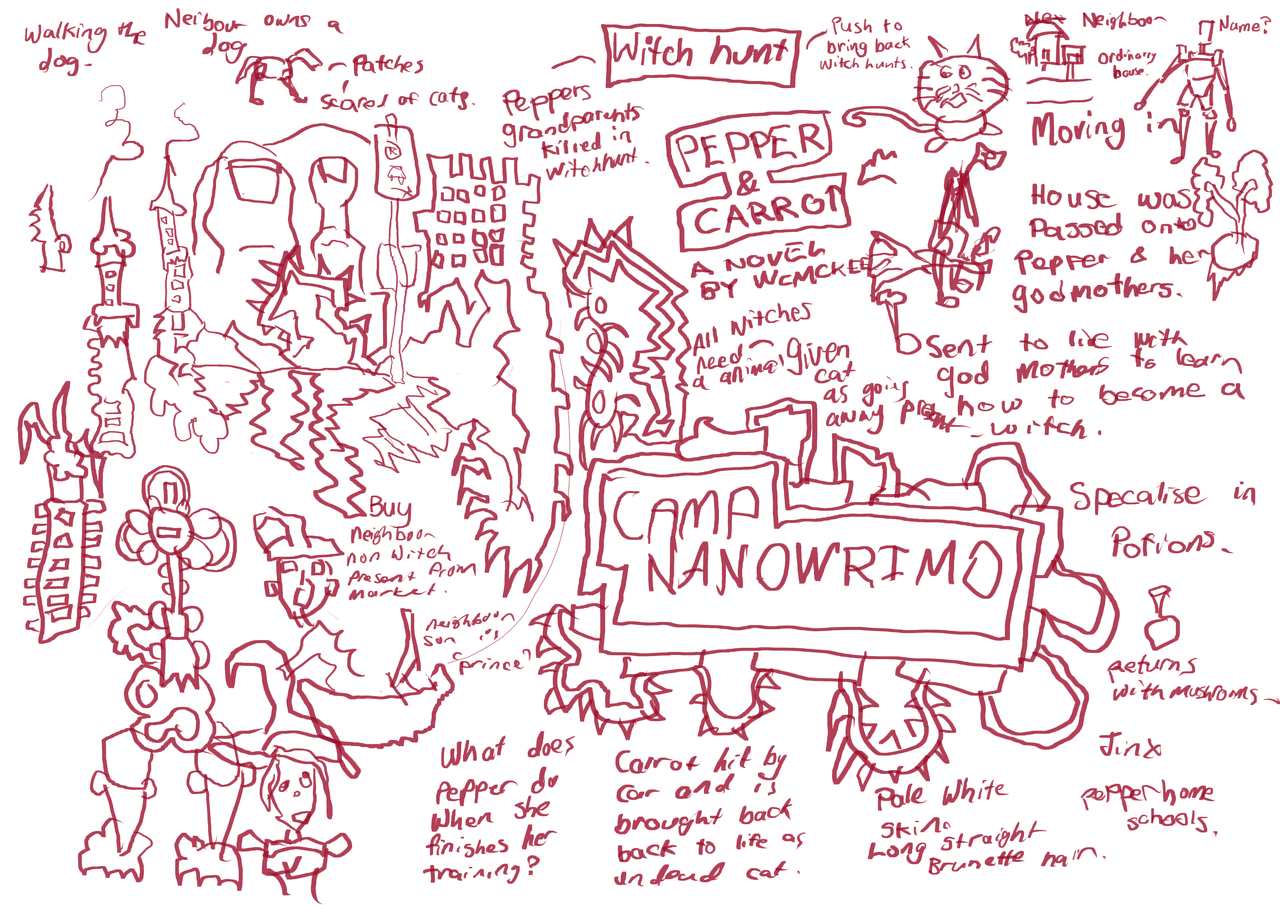 Walking the
dog.
Neibour owns a
dog
Patches
scared of cats.
Witch hunt
Push to
bring back
witch hunts.
New Neighboor
ordinary
house.
Name?
Moving in
Peppers
grandparents
killed in
witchhunt.
PEPPER
&
CARROT
A NOVEL
BY WCMCKEE
House was
Passed onto
Pepper & her
godmothers.
All Witches
need
a animal
given
cat
as going
away present
Sent to live with
god mothers to learn
how to become a
witch.
CAMP
NANOWRIMO
Specalise in
Potions.
Buy
neighboor
non witch
present from
market.
neighboor
son is
prince?
returns
with mushroms
Jinx
pepper home
schools.
What does
pepper do
When she
finishes her
training?
Carrot hit by
car and is
brought back
back to life as
undead cat.
Pale White
skin.
Long straight
Brunette hair.